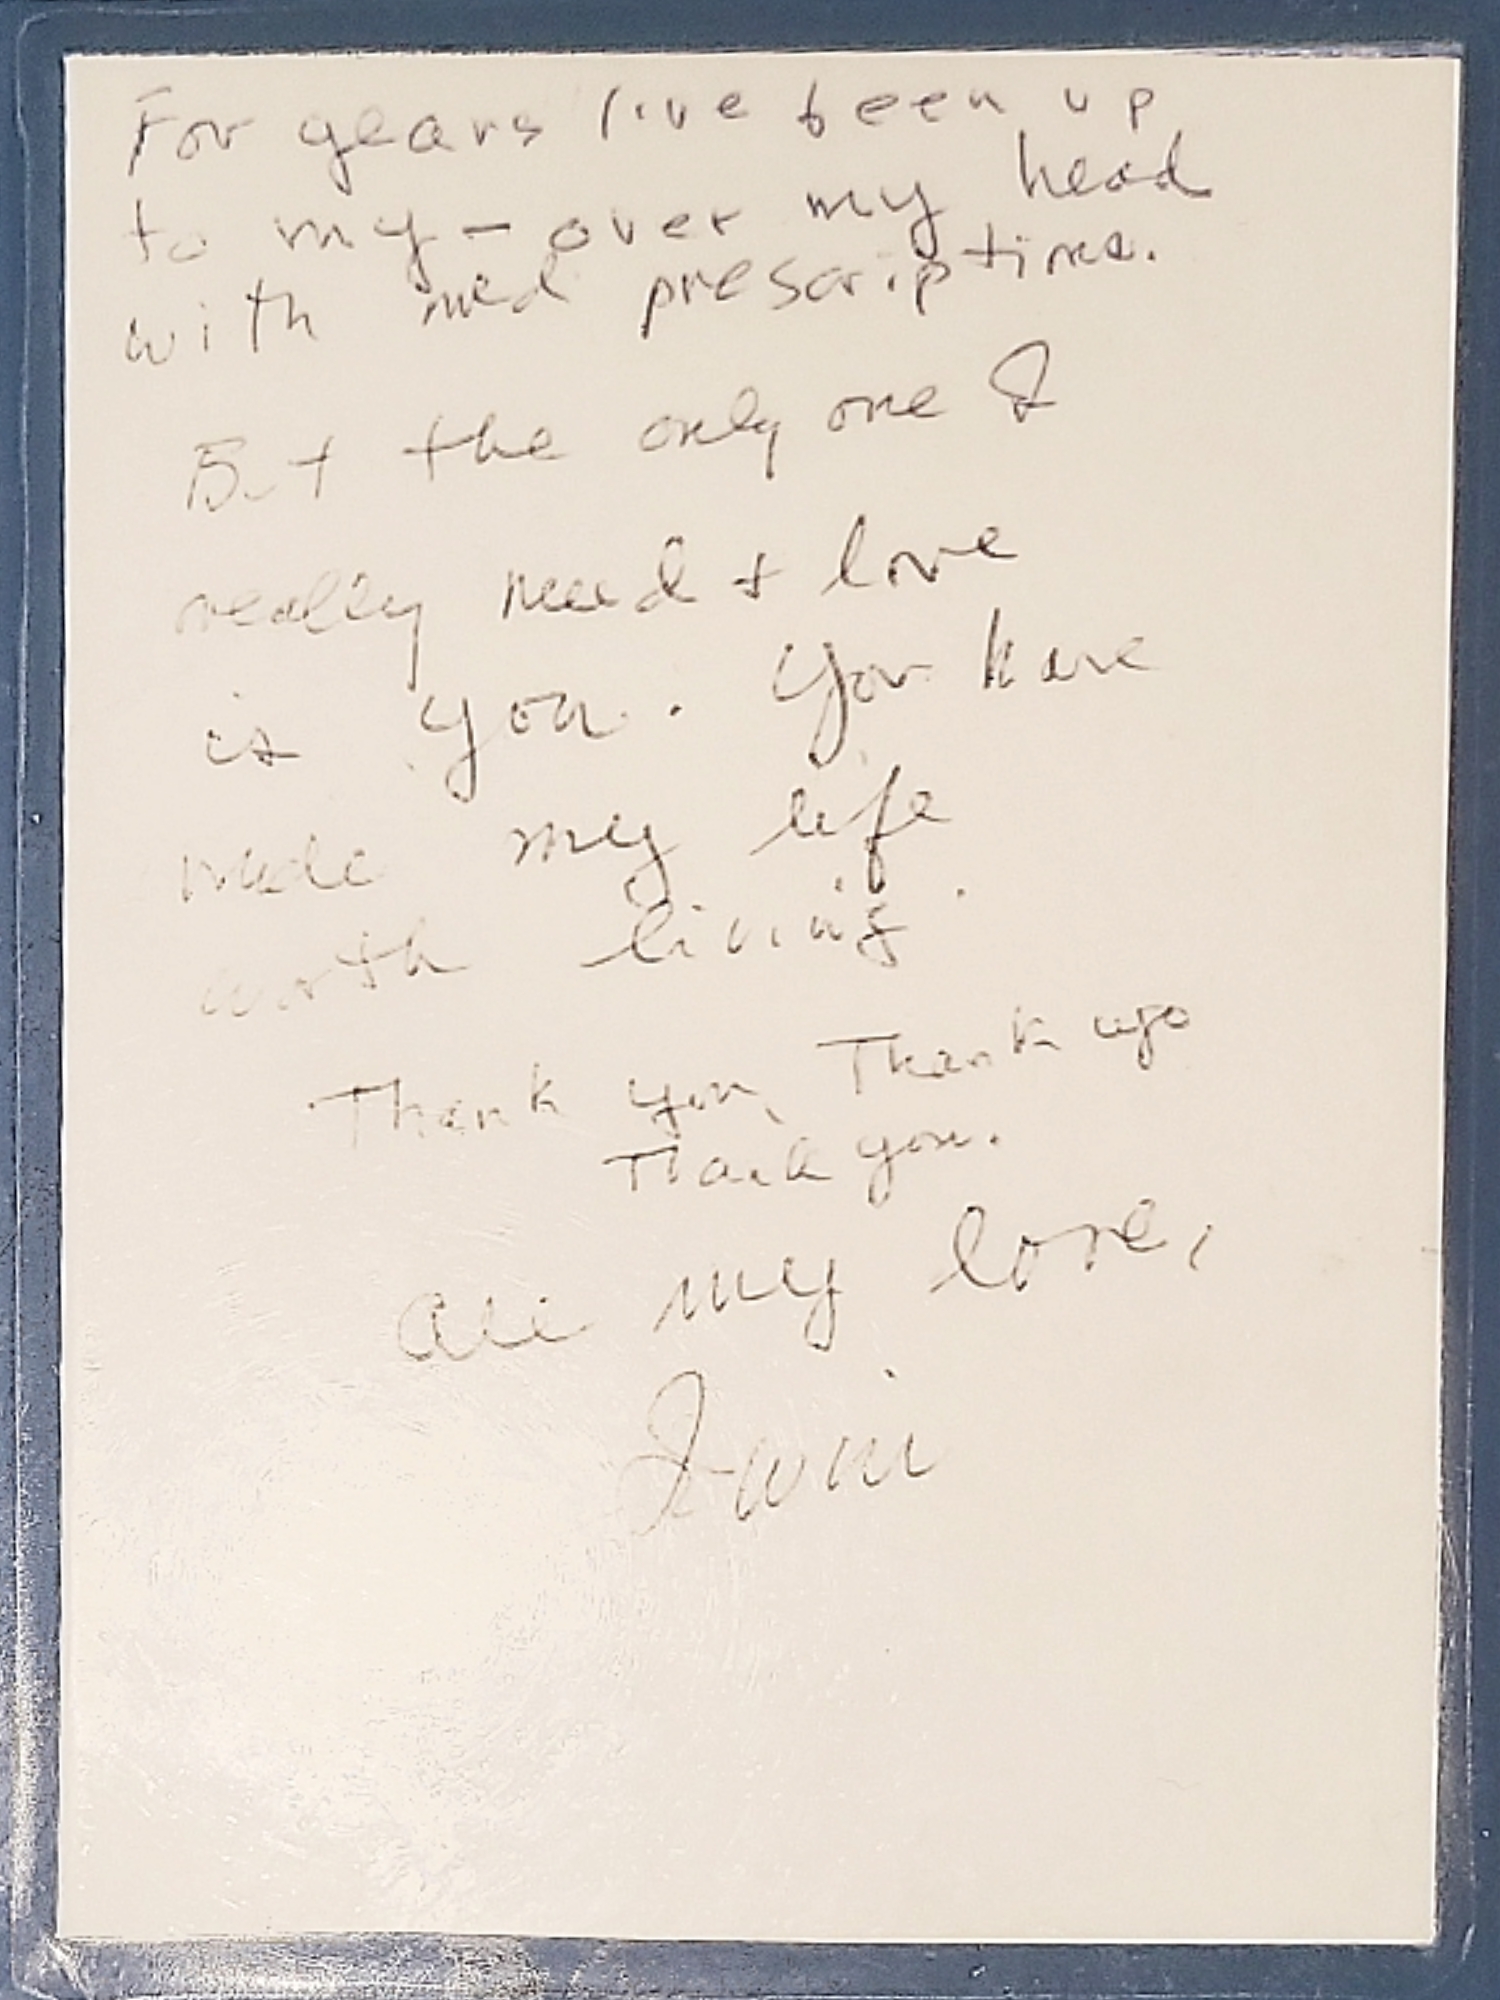 For years I've been up
to my - over my head
with med prescriptions.
But the only one I
really need + love
is you. You have
made my life
worth living.
Thank you, Thank uyo
Thank you.
All my love,
Irwin